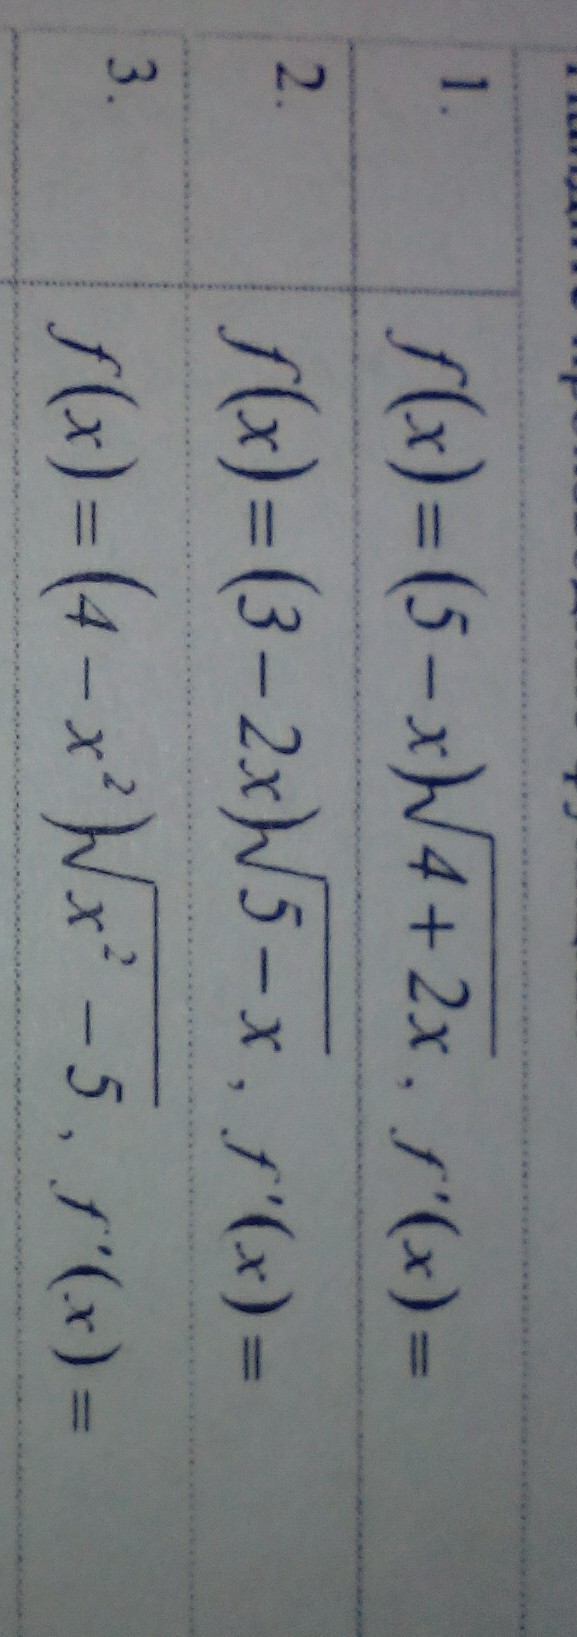 1. f(x) = (5 − x)√(4 + 2x), f'(x) =
2. f(x) = (3 − 2x)√(5 − x), f'(x) =
3. f(x) = (4 − x²)√(x² − 5), f'(x) =